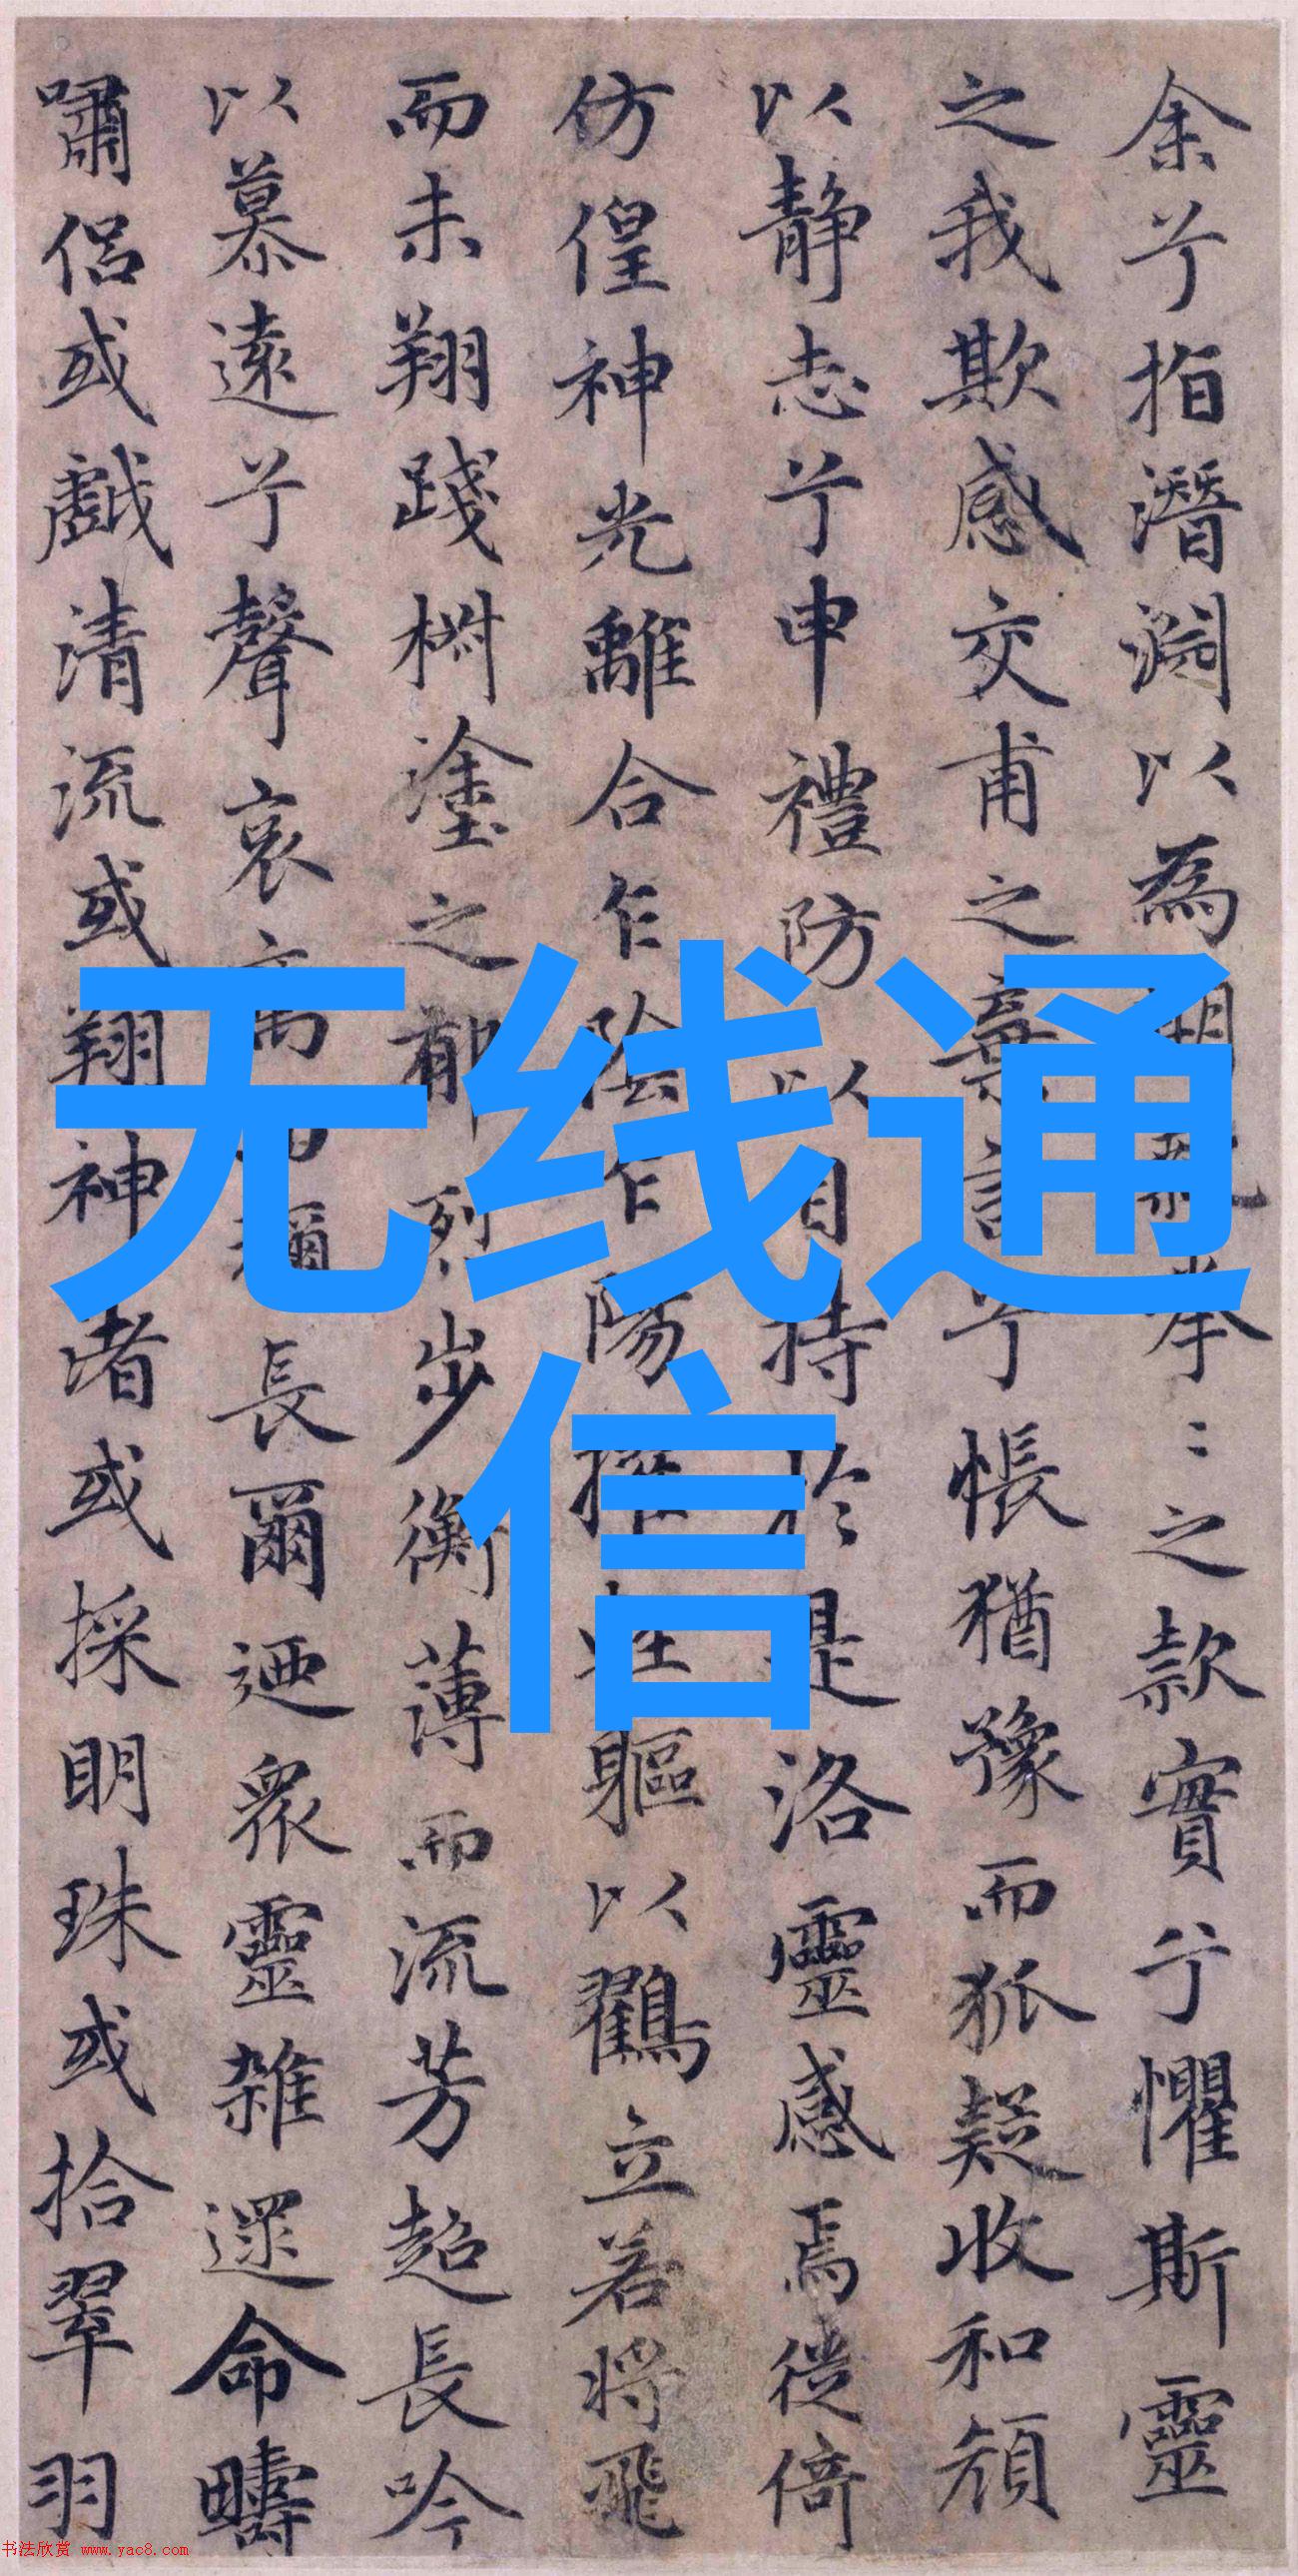 余兮指潛淵以為期執拳〻之款實兮懼斯靈
之我欺感交甫之棄言兮悵猶豫而狐疑收和顏
以靜志兮申禮防以自持於是洛靈感焉徙倚
仿偟神光離合乍陰乍陽擢輕軀以鶴立若將飛
而未翔踐椒塗之郁烈步衡薄而流芳超長吟
以慕遠兮聲哀厲而彌長爾迺眾靈雜遝命疇
嘯侶或戲清流或翔神渚或採明珠或拾翠羽
无线通
信
书法欣赏 www.yac8.com